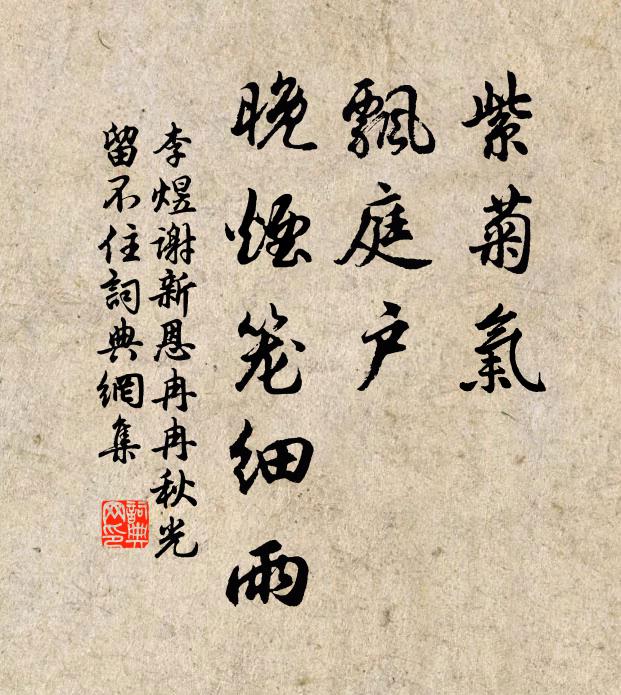 紫菊氣
飄庭户
晚煙笼細雨
李煜谢新恩冉冉秋光
留不住詞典網集
詞典
网印